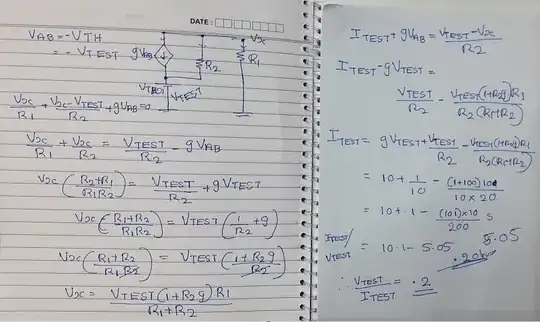 DATE:
VAB = -VTH
= -VTEST
gVAB
Vx
R2
R1
VTEST
Vx/R1 + (Vx-VTEST)/R2 + gVAB = 0
Vx/R1 + Vx/R2 = VTEST/R2 - gVAB
Vx((R2+R1)/(R1R2)) = VTEST/R2 + gVTEST
Vx((R1+R2)/(R1R2)) = VTEST(1/R2 + g)
Vx((R1+R2)/(R1R2)) = VTEST((1+R2g)/R2)
Vx = VTEST(1+R2g)R1/(R1+R2)
ITEST + gVAB = (VTEST-Vx)/R2
ITEST - gVTEST =
VTEST/R2 - VTEST(1+R2g)R1/(R2(R1+R2))
ITEST = gVTEST + VTEST/R2 - VTEST(1+R2g)R1/(R2(R1+R2))
= 10 + 1/10 - (1+100)10/(10×20)
= 10 + .1 - (101)×10/200
5.05
ITEST/VTEST = 10.1 - 5.05
∴ VTEST/ITEST = .2